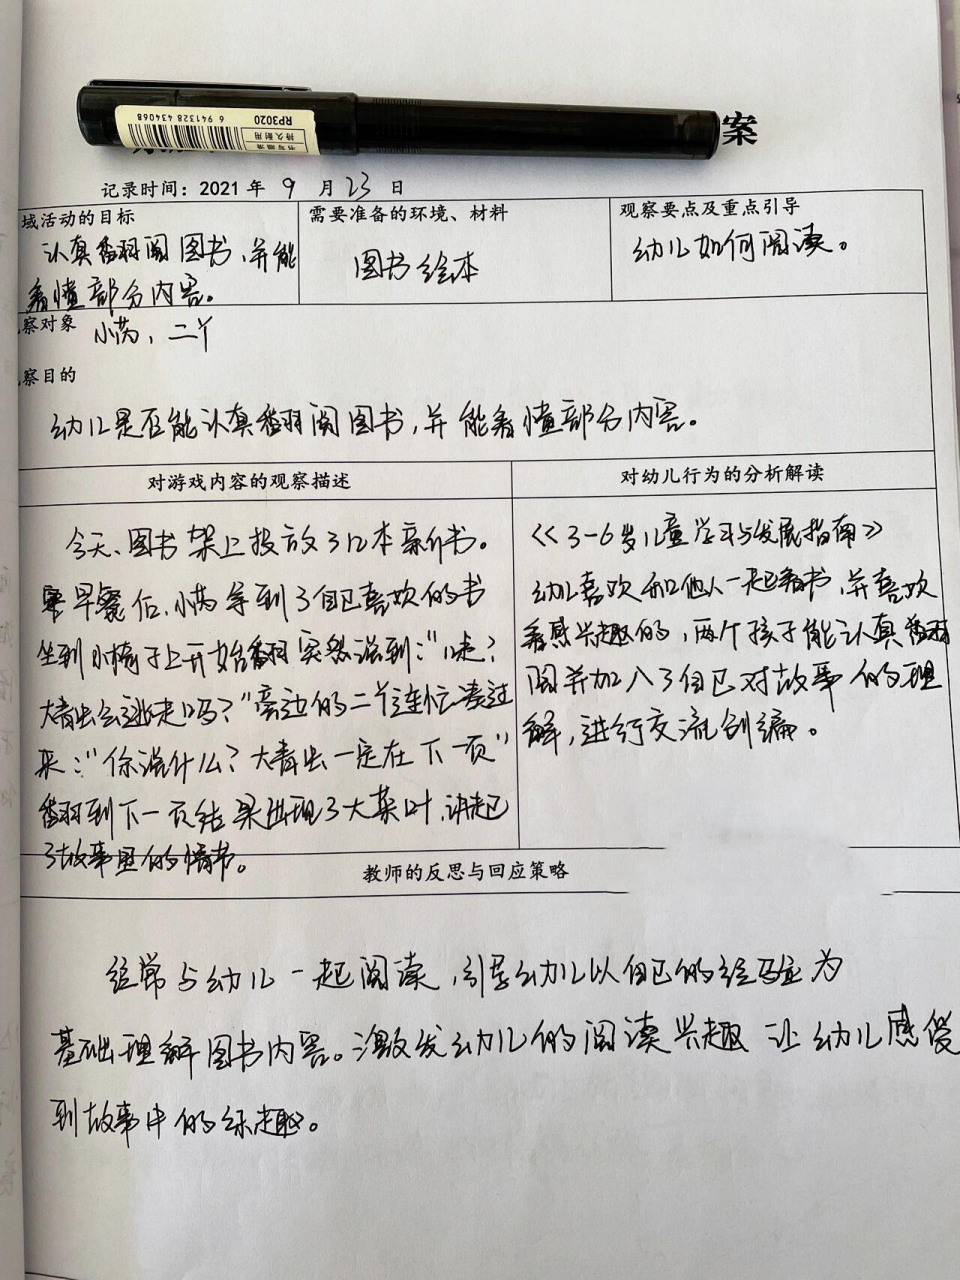 RP3020
持久耐用
书写顺滑
6 941328 434068
案
记录时间：2021 年 9 月 23 日
域活动的目标
需要准备的环境、材料
观察要点及重点引导
认真翻阅图书，并能
看懂部分内容。
图书绘本
幼儿如何阅读。
察对象 小满，二丫
察目的
幼儿是否能认真翻阅图书，并能看懂部分内容。
对游戏内容的观察描述
对幼儿行为的分析解读
今天、图书架上投放了几本新书。
早餐后，小满拿到了自己喜欢的书
坐到小椅子上开始翻突然说到：“咦？
大青虫会逃走吗？”旁边的二丫连忙凑过
来：“你说什么？大青虫一定在下一页”
翻到下一页结果出现了大菜叶，讲起
了故事里的情节。
《3-6岁儿童学习与发展指南》
幼儿喜欢和他人一起看书，并喜欢
看感兴趣的，两个孩子能认真翻
阅并加入了自己对故事的理
解，进行交流创编。
教师的反思与回应策略
经常与幼儿一起阅读，引导幼儿以自己的经验为
基础理解图书内容。激发幼儿的阅读兴趣 让幼儿感受
到故事中的乐趣。